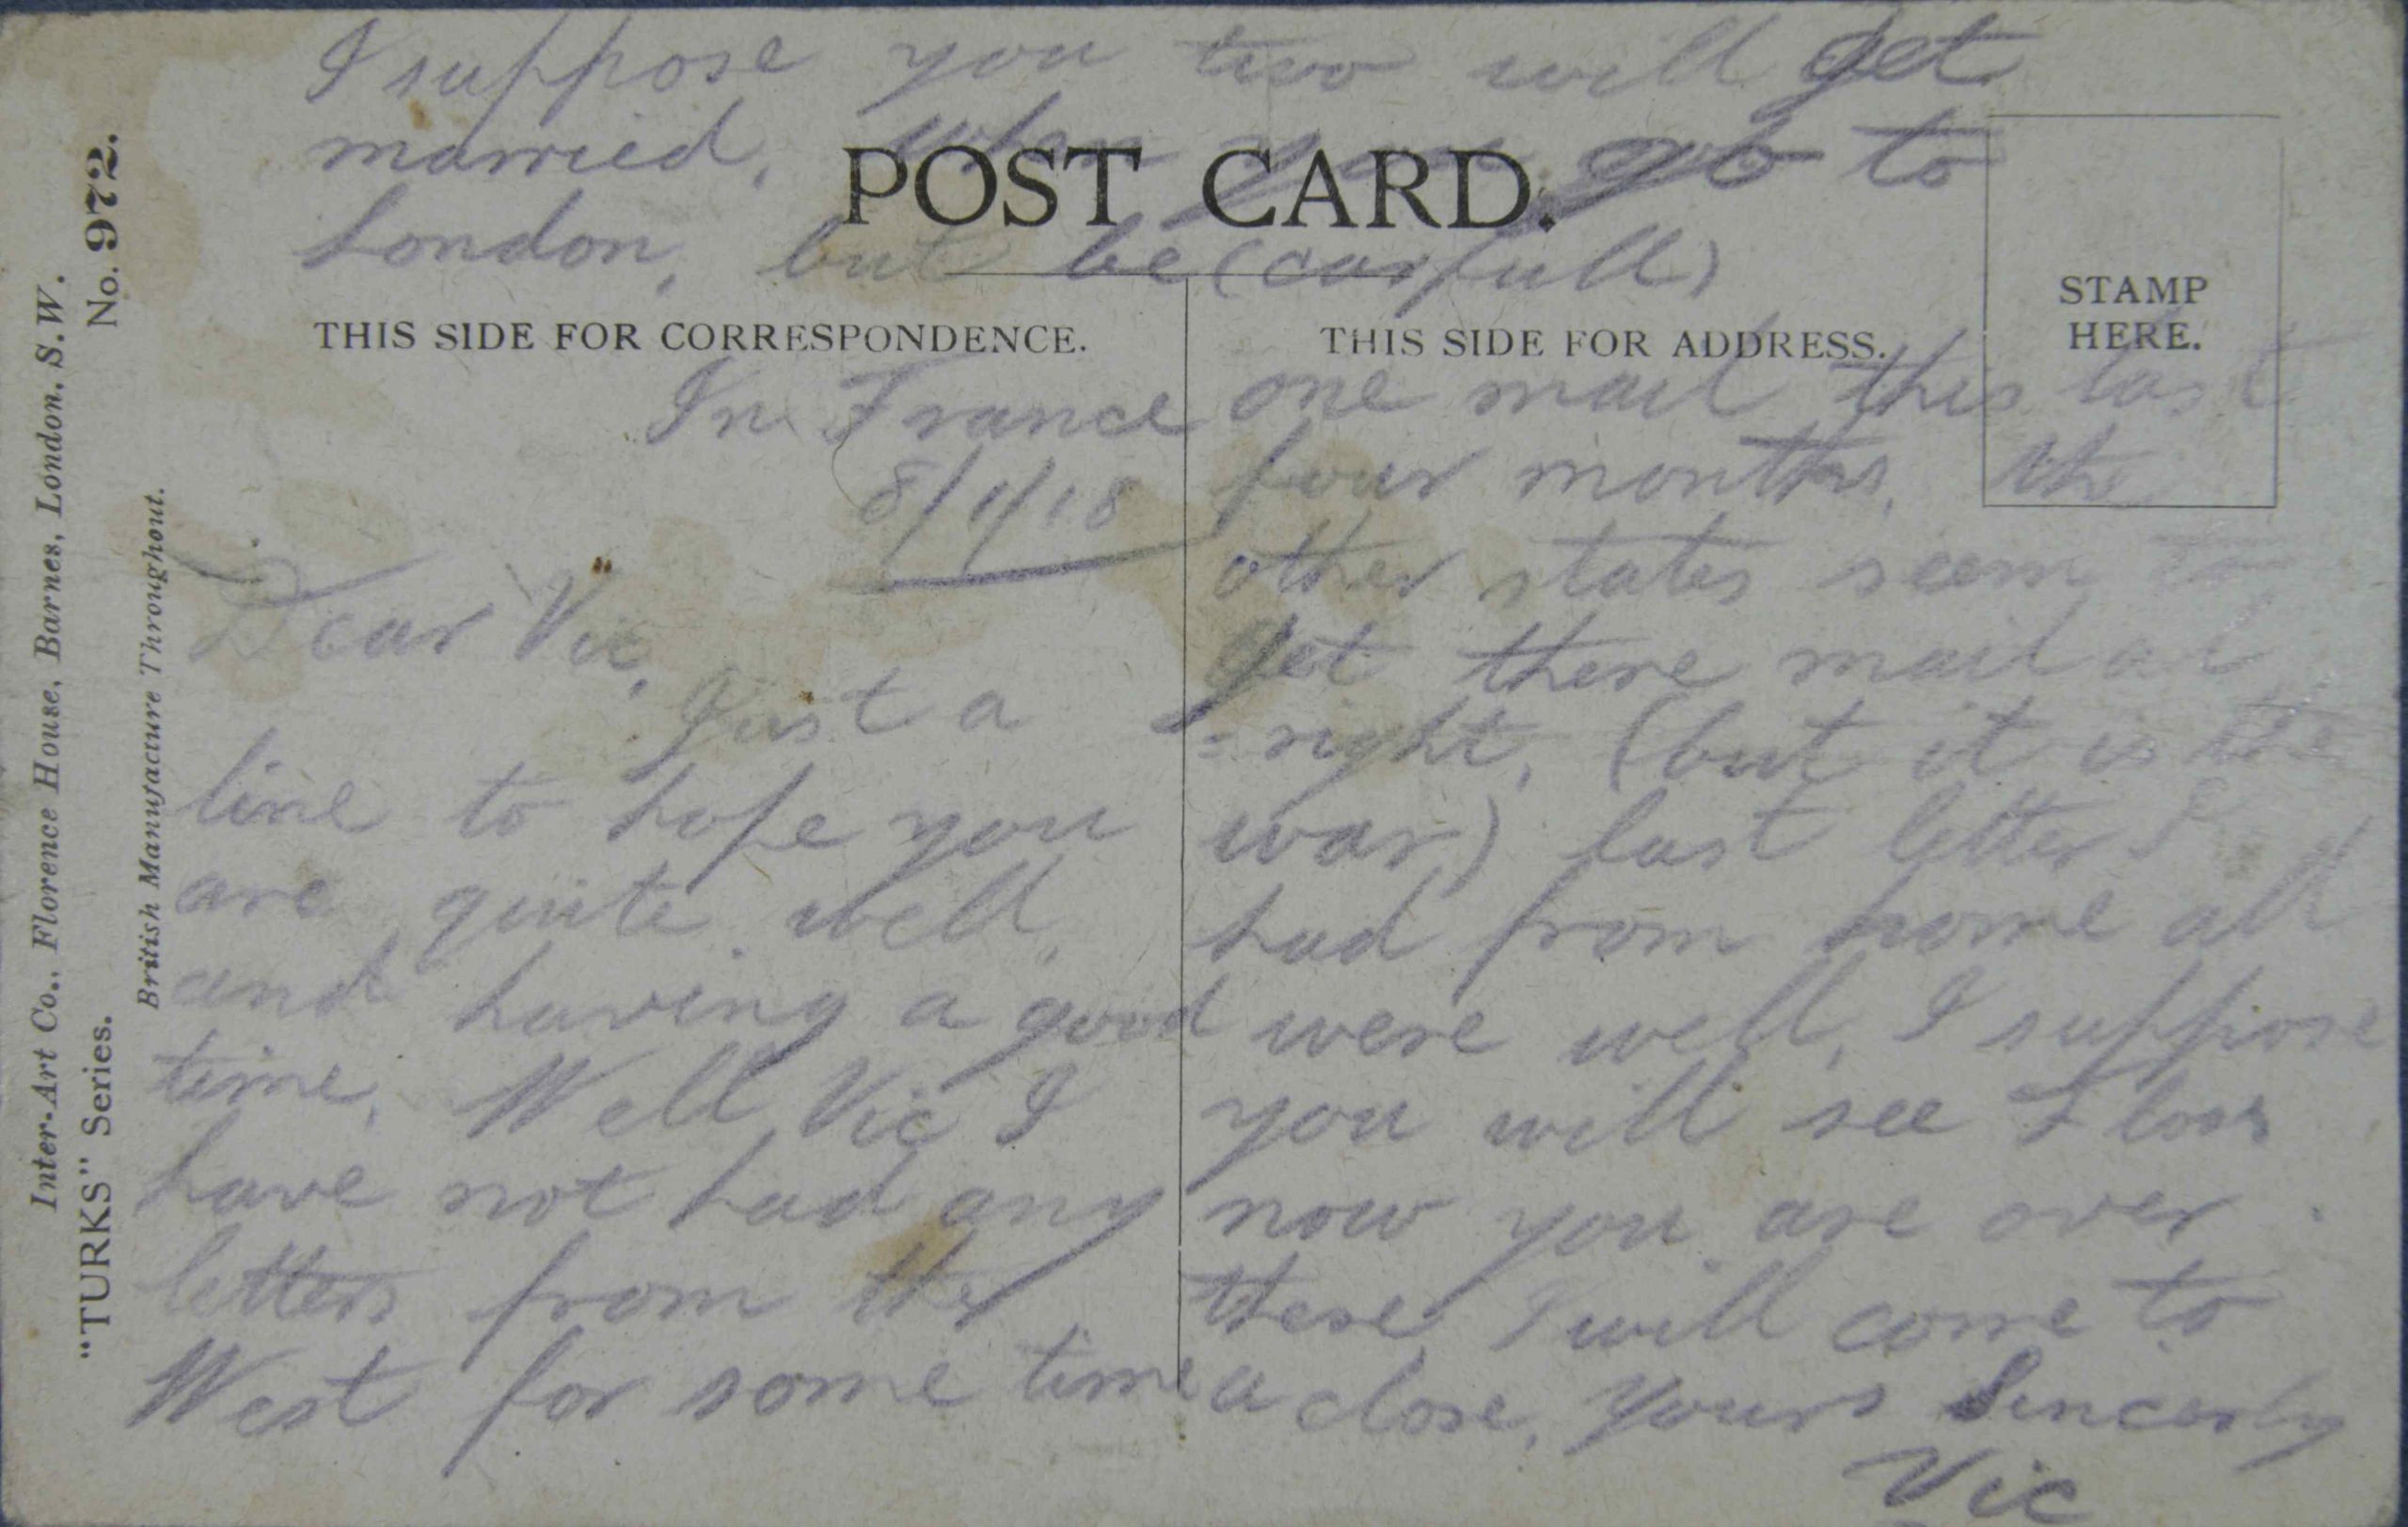 I suppose you two will get
married, when you go to
London, but be (carfull)
POST CARD.
THIS SIDE FOR CORRESPONDENCE.
THIS SIDE FOR ADDRESS.
STAMP
HERE.
Inter-Art Co., Florence House, Barnes, London, S.W.
"TURKS" Series.
No. 972.
British Manufacture Throughout.
In France
8/1/18
Dear Vic,
Just a
line to hope you
are quite well,
and having a good
time, Well Vic I
have not had any
letters from the
West for some time
one mail this last
four months, the
other states seem to
get there mail al
=right, (but it is the
war) last letter I
had from home all
were well, I suppose
you will see Floss
now you are over
there, I will come to
a close, Yours Sincerly
Vic